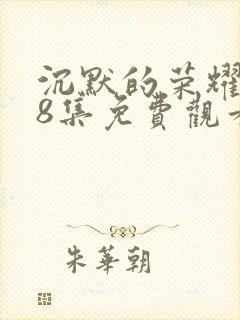 沉默的荣耀
8集免費觀
朱華朝